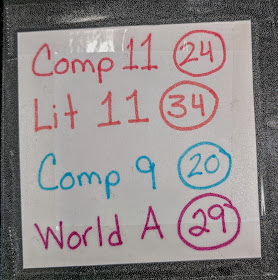 Comp 11 24
Lit 11 34
Comp 9 20
World A 29